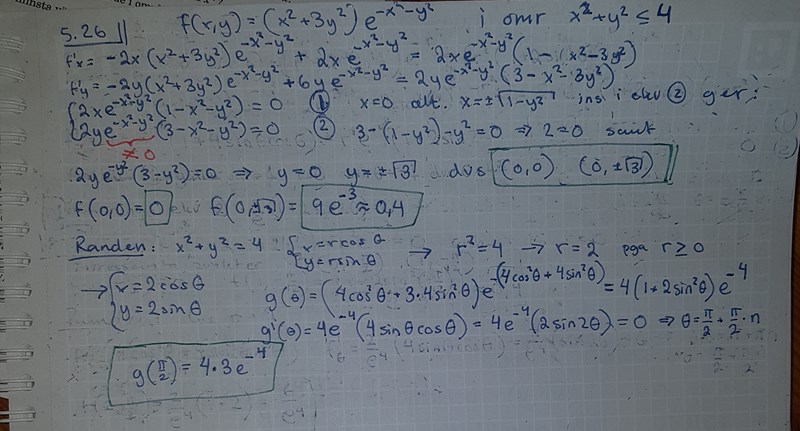 5.26 f(x,y) = (x²+3y²) e^(-x²-y²) i omr x²+y² ≤ 4
f'x = -2x (x²+3y²) e^(-x²-y²) + 2x e^(-x²-y²) = 2x e^(-x²-y²) (1-x²-3y²)
f'y = -2y (x²+3y²) e^(-x²-y²) + 6y e^(-x²-y²) = 2y e^(-x²-y²) (3-x²-3y²)
{ 2x e^(-x²-y²) (1-x²-y²) = 0 ① x=0 alt. x=±√(1-y²) ins i ekv ② ger:
{ 2y e^(-x²-y²) (3-x²-y²) = 0 ② 3-(1-y²)-y² = 0 ⇒ 2=0 sant
≠ 0
2y e^(-y²) (3-y²) = 0 ⇒ y=0 y=±√3 dvs (0,0) (0,±√3)
f(0,0) = 0 f(0,±√3) = 9e^(-3) ≈ 0,4
Randen: x²+y² = 4 { x = r cos θ y = r sin θ → r² = 4 → r = 2 pga r ≥ 0
→ { x = 2 cos θ y = 2 sin θ
g(θ) = (4cos²θ + 3·4sin²θ) e^(-(4cos²θ+4sin²θ)) = 4(1+2sin²θ) e^(-4)
g'(θ) = 4e^(-4) (4 sin θ cos θ) = 4e^(-4) (2 sin 2θ) = 0 ⇒ θ = π/2 + π/2 · n
g(π/2) = 4·3e^(-4)